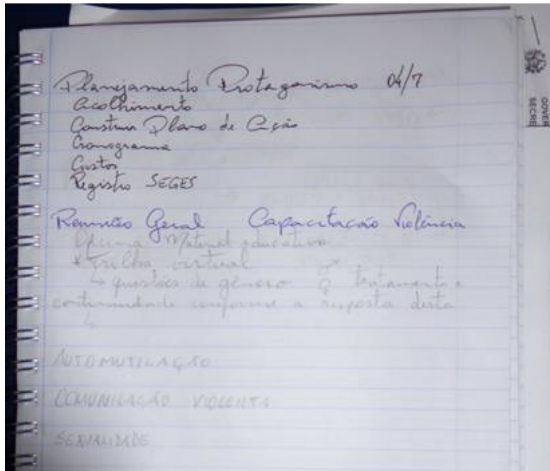 Planejamento Protagonismo 04/7
Acolhimento
Construir Plano de Ação
Cronograma
Gastos
Registro SEGES
Reunião Geral Capacitação Violência
Oficina Material educativo
* Trilha virtual
↳ questões de gênero ♂ ♀ tratamento e
continuidade conforme a resposta desta
↳
AUTOMUTILAÇÃO
COMUNICAÇÃO VIOLENTA
SEXUALIDADE
GOVER
SECRE